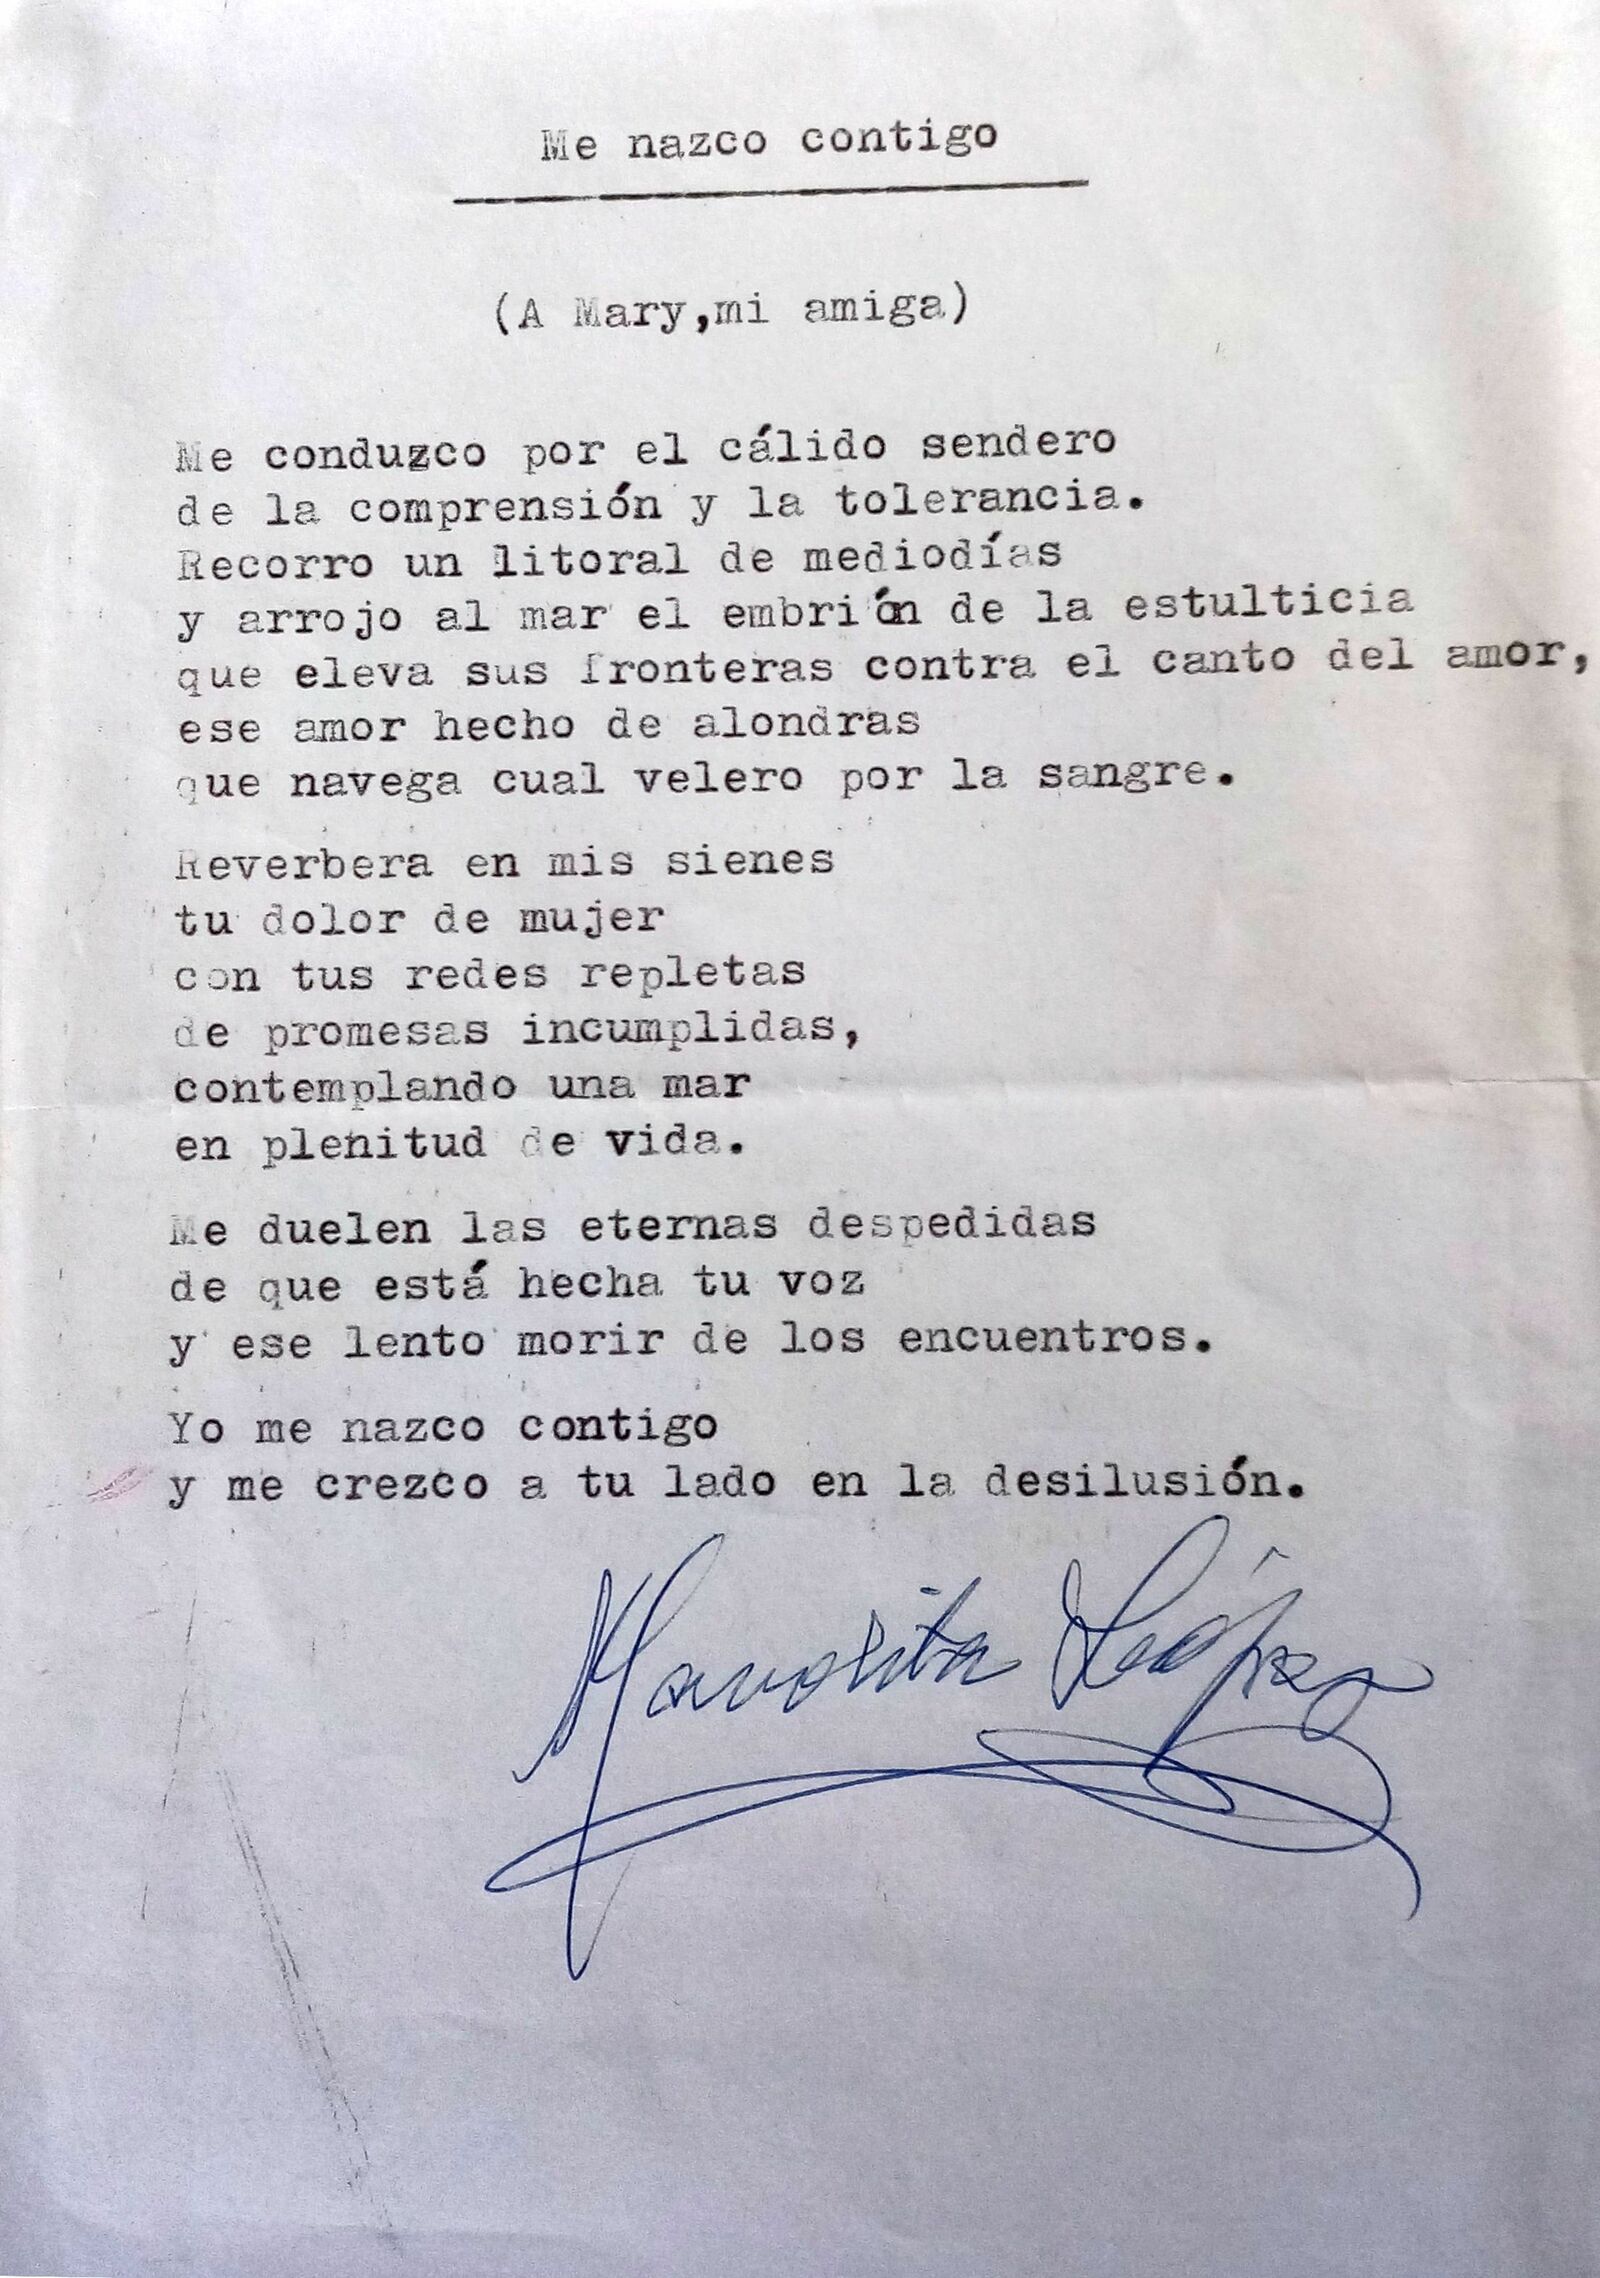 Me nazco contigo
(A Mary,mi amiga)
Me conduzco por el cálido sendero
de la comprensión y la tolerancia.
Recorro un litoral de mediodías
y arrojo al mar el embrión de la estulticia
que eleva sus fronteras contra el canto del amor,
ese amor hecho de alondras
que navega cual velero por la sangre.
Reverbera en mis sienes
tu dolor de mujer
con tus redes repletas
de promesas incumplidas,
contemplando una mar
en plenitud de vida.
Me duelen las eternas despedidas
de que está hecha tu voz
y ese lento morir de los encuentros.
Yo me nazco contigo
y me crezco a tu lado en la desilusión.
Manolita López